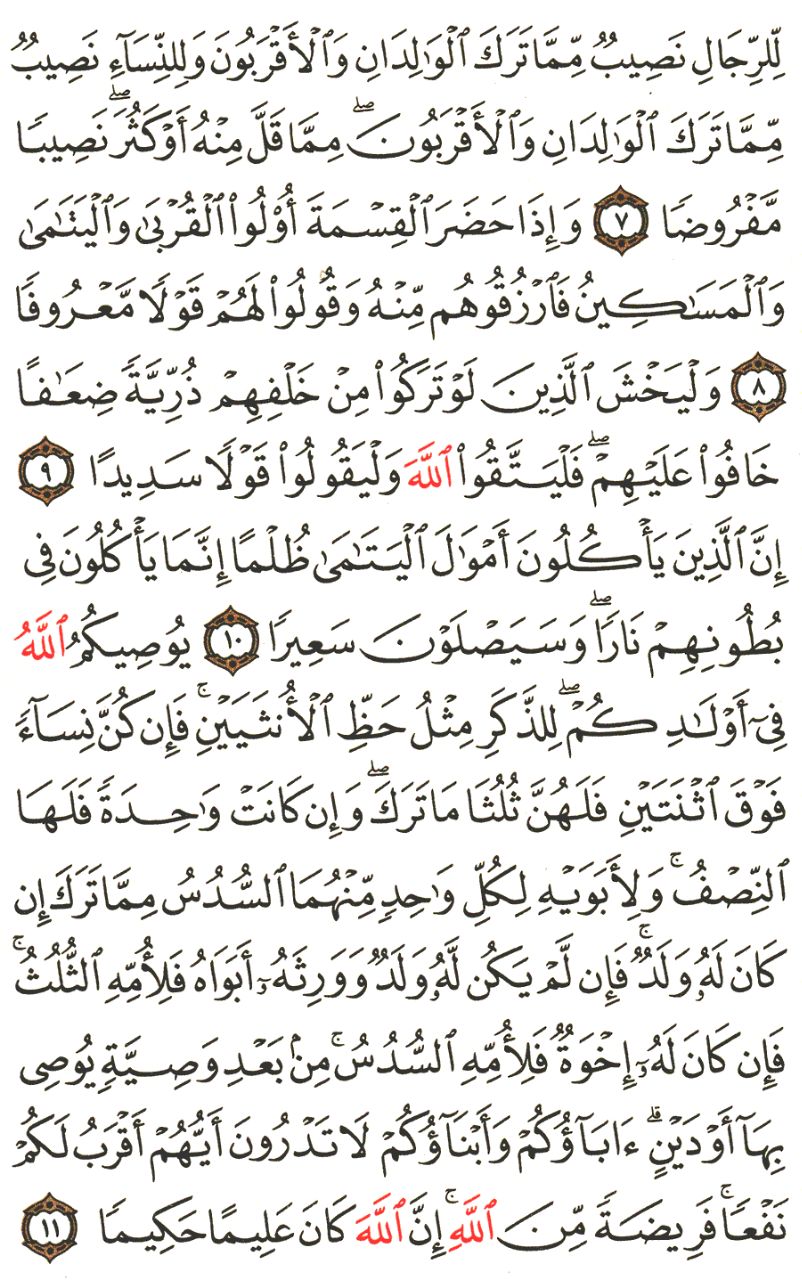 لِّلرِّجَالِ نَصِيبٌ مِّمَّا تَرَكَ ٱلْوَٰلِدَانِ وَٱلْأَقْرَبُونَ وَلِلنِّسَآءِ نَصِيبٌ
مِّمَّا تَرَكَ ٱلْوَٰلِدَانِ وَٱلْأَقْرَبُونَ ۖ مِمَّا قَلَّ مِنْهُ أَوْ كَثُرَ ۖ نَصِيبًا
مَّفْرُوضًا ٧ وَإِذَا حَضَرَ ٱلْقِسْمَةَ أُوْلُوا۟ ٱلْقُرْبَىٰ وَٱلْيَتَٰمَىٰ
وَٱلْمَسَٰكِينُ فَٱرْزُقُوهُم مِّنْهُ وَقُولُوا۟ لَهُمْ قَوْلًا مَّعْرُوفًا
٨ وَلْيَخْشَ ٱلَّذِينَ لَوْ تَرَكُوا۟ مِنْ خَلْفِهِمْ ذُرِّيَّةً ضِعَٰفًا
خَافُوا۟ عَلَيْهِمْ ۖ فَلْيَتَّقُوا۟ ٱللَّهَ وَلْيَقُولُوا۟ قَوْلًا سَدِيدًا ٩
إِنَّ ٱلَّذِينَ يَأْكُلُونَ أَمْوَٰلَ ٱلْيَتَٰمَىٰ ظُلْمًا إِنَّمَا يَأْكُلُونَ فِى
بُطُونِهِمْ نَارًا ۖ وَسَيَصْلَوْنَ سَعِيرًا ١٠ يُوصِيكُمُ ٱللَّهُ
فِىٓ أَوْلَٰدِكُمْ ۖ لِلذَّكَرِ مِثْلُ حَظِّ ٱلْأُنثَيَيْنِ ۚ فَإِن كُنَّ نِسَآءً
فَوْقَ ٱثْنَتَيْنِ فَلَهُنَّ ثُلُثَا مَا تَرَكَ ۖ وَإِن كَانَتْ وَٰحِدَةً فَلَهَا
ٱلنِّصْفُ ۚ وَلِأَبَوَيْهِ لِكُلِّ وَٰحِدٍ مِّنْهُمَا ٱلسُّدُسُ مِمَّا تَرَكَ إِن
كَانَ لَهُۥ وَلَدٌ ۚ فَإِن لَّمْ يَكُن لَّهُۥ وَلَدٌ وَوَرِثَهُۥٓ أَبَوَاهُ فَلِأُمِّهِ ٱلثُّلُثُ ۚ
فَإِن كَانَ لَهُۥٓ إِخْوَةٌ فَلِأُمِّهِ ٱلسُّدُسُ ۚ مِنۢ بَعْدِ وَصِيَّةٍ يُوصِى
بِهَآ أَوْ دَيْنٍ ۗ ءَابَآؤُكُمْ وَأَبْنَآؤُكُمْ لَا تَدْرُونَ أَيُّهُمْ أَقْرَبُ لَكُمْ
نَفْعًا ۚ فَرِيضَةً مِّنَ ٱللَّهِ ۚ إِنَّ ٱللَّهَ كَانَ عَلِيمًا حَكِيمًا ١١